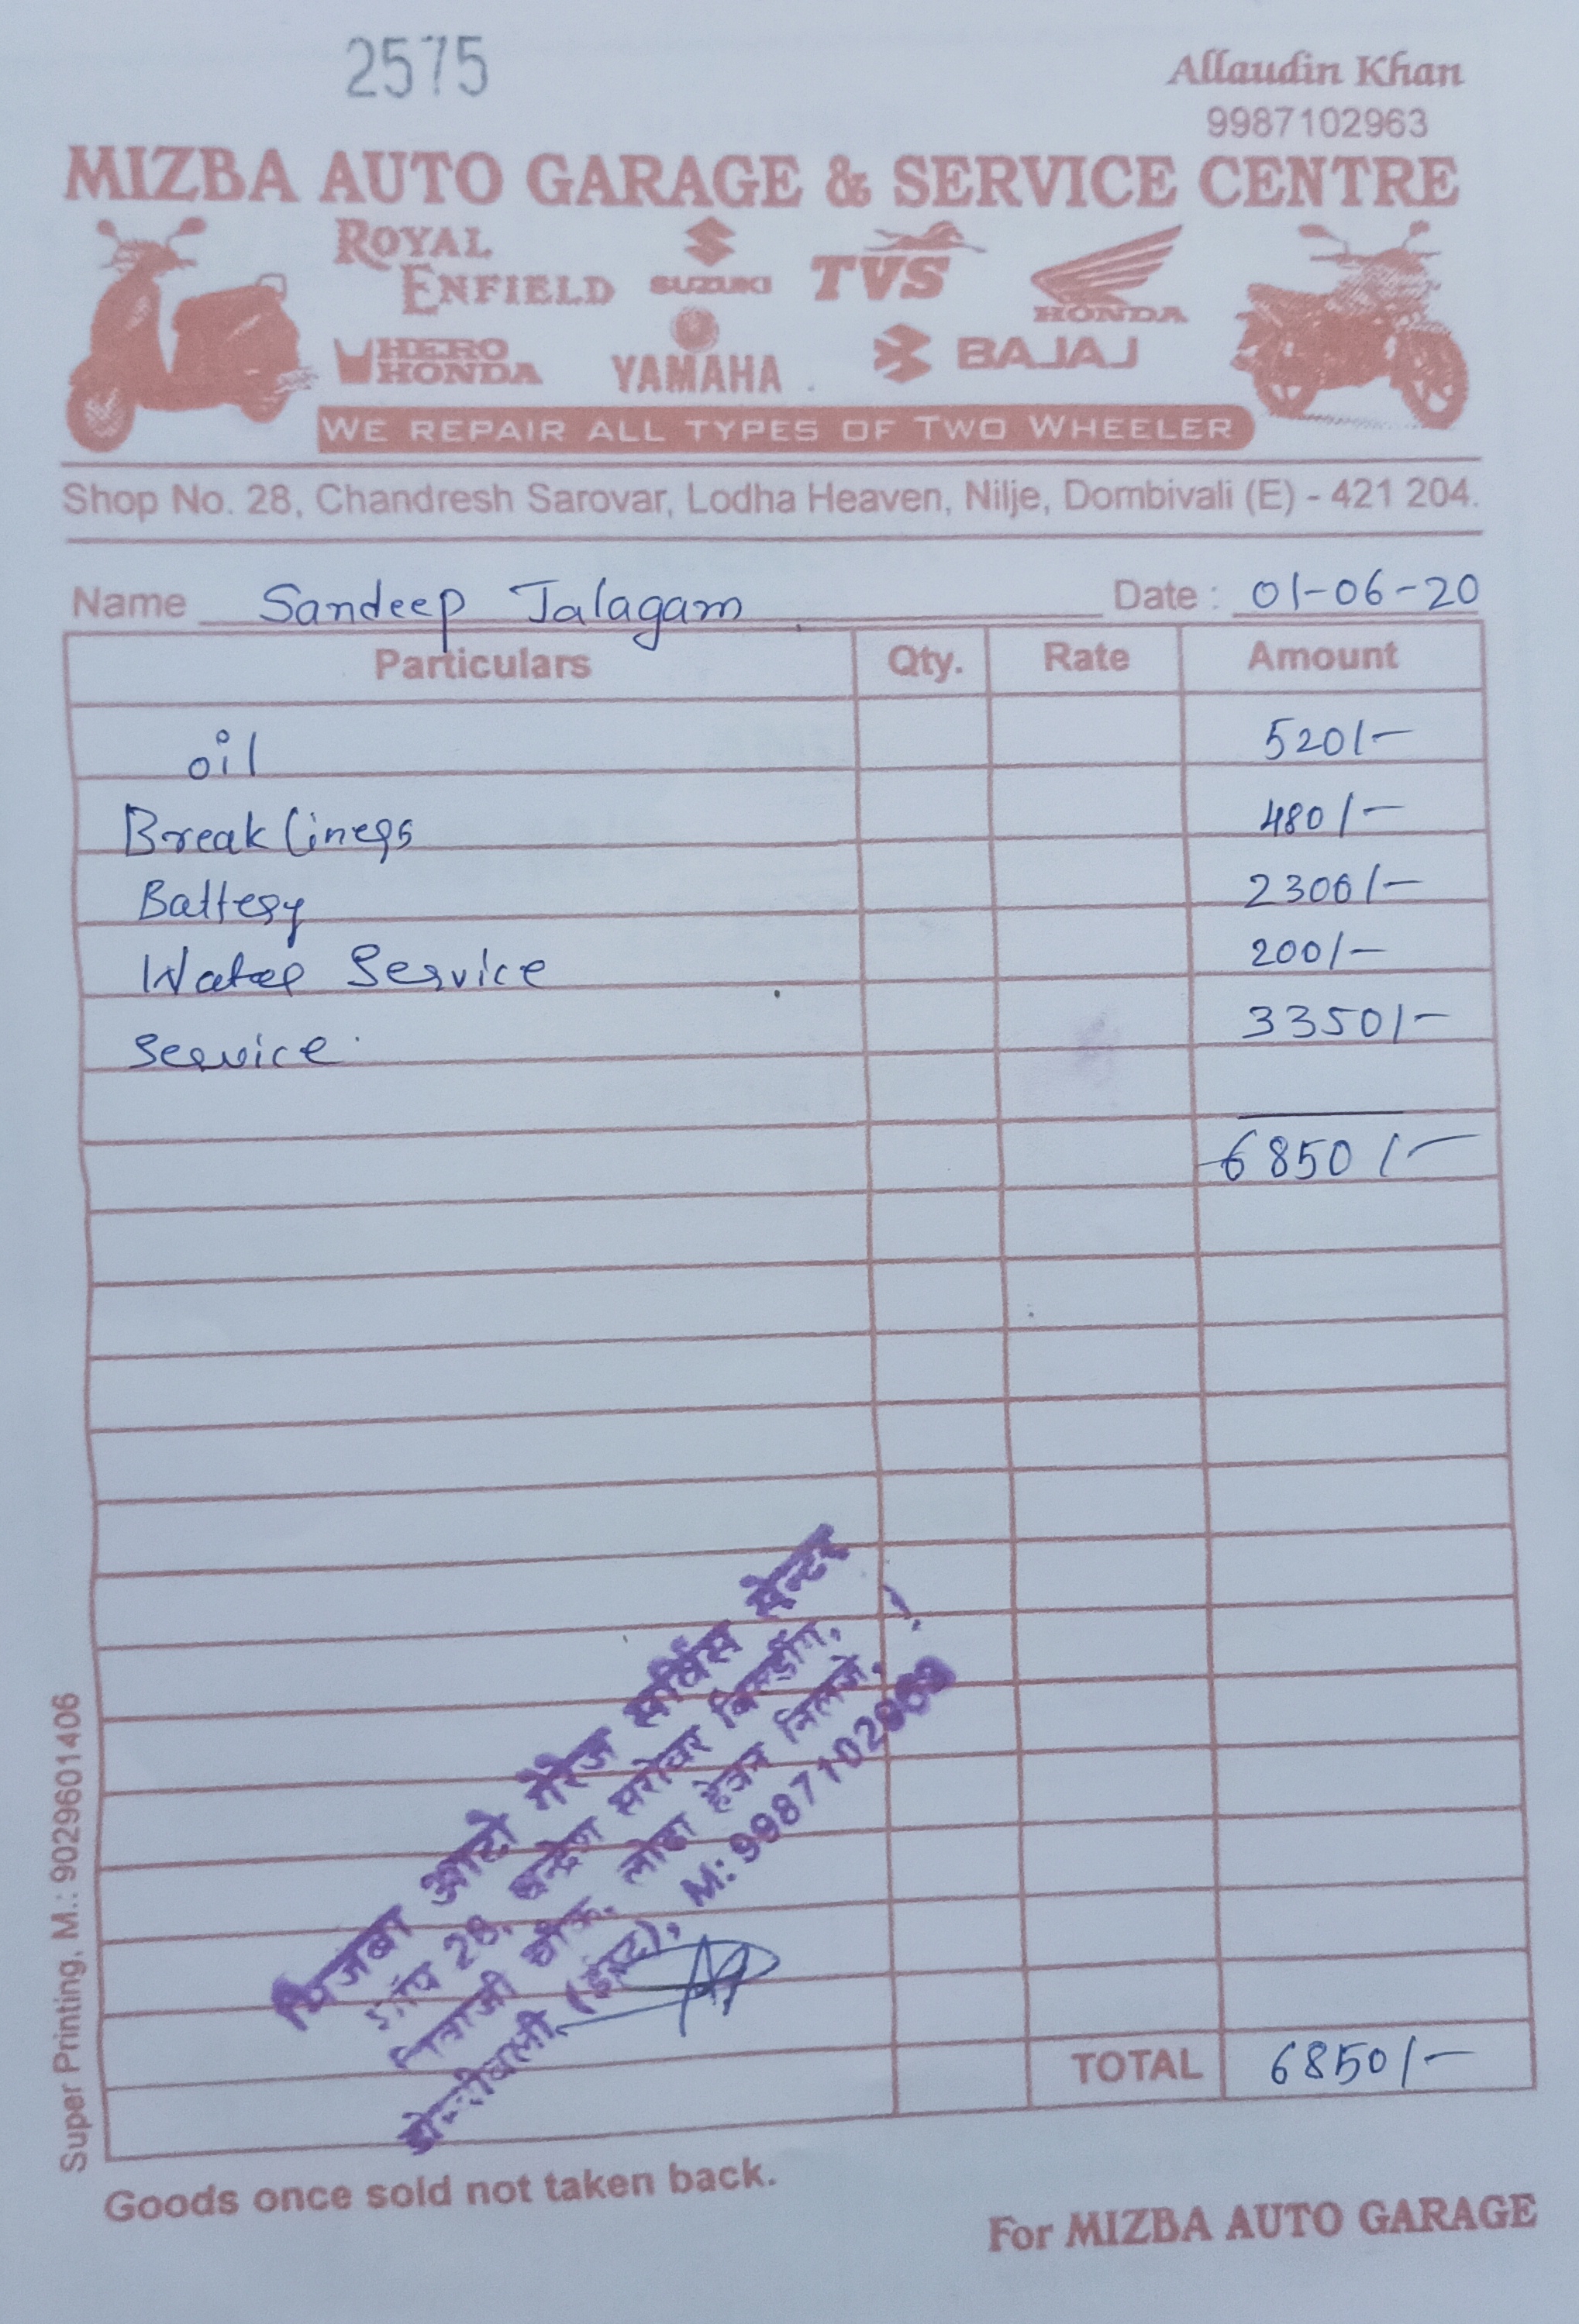 2575
Allaudin Khan
9987102963
MIZBA AUTO GARAGE & SERVICE CENTRE
ROYAL ENFIELD SUZUKI TVS HONDA
HERO HONDA YAMAHA BAJAJ
WE REPAIR ALL TYPES OF TWO WHEELER
Shop No. 28, Chandresh Sarovar, Lodha Heaven, Nilje, Dombivali (E) - 421 204.
Name Sandeep Jalagam Date : 01-06-20
Particulars Qty. Rate Amount
oil 520/-
Break Liners 480/-
Battery 2300/-
Water Service 200/-
Service 3350/-
6850/-
मिजबा आटो गॅरेज सर्विस सेन्टर
शॉप 28, चन्द्रेश सरोवर बिल्डींग,
शिवाजी चौक, लोढा हेवन निलजे,
डोम्बीवली (ईस्ट), M: 9987102963
TOTAL 6850/-
Goods once sold not taken back.
For MIZBA AUTO GARAGE
Super Printing, M.: 9029601406